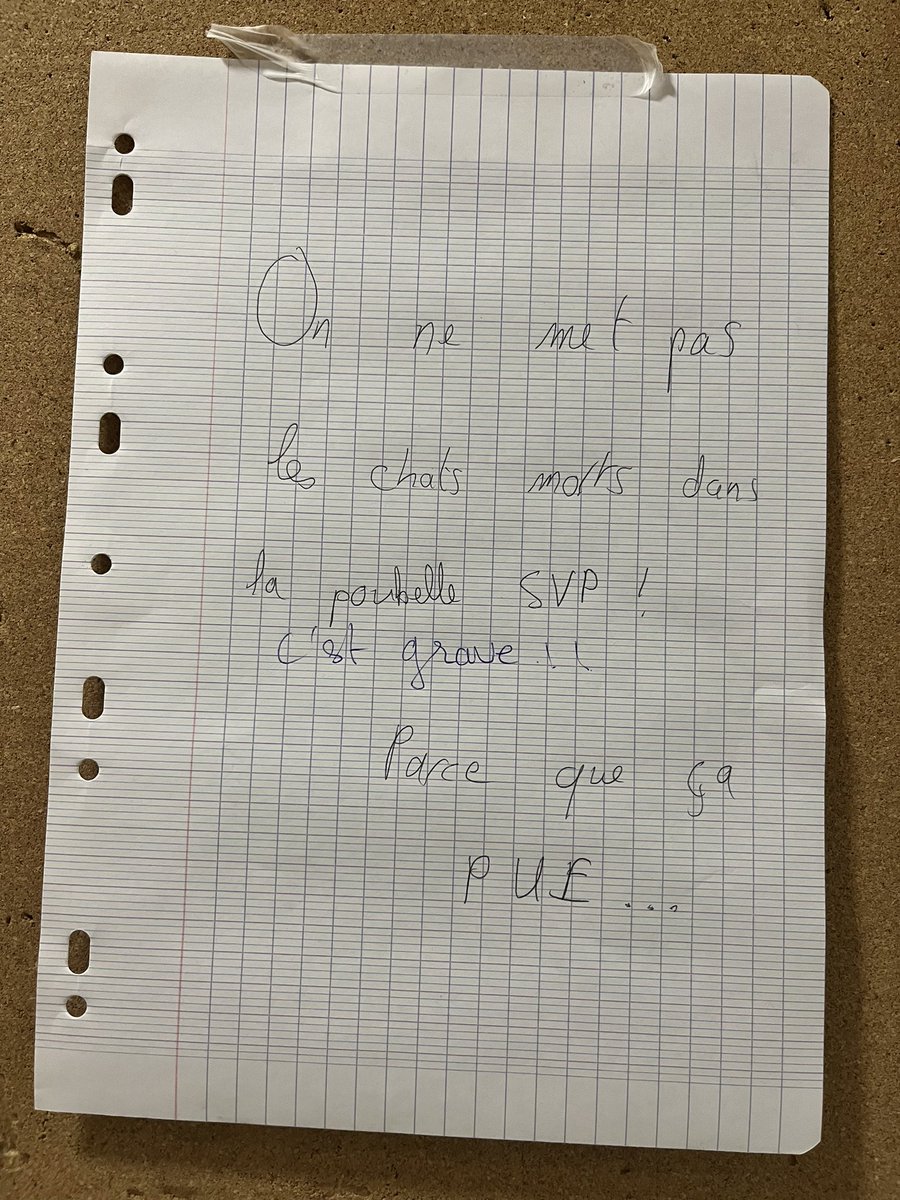 On ne met pas
les chats morts dans
la poubelle SVP !
c'est grave !!
Parce que ça
PUE ....